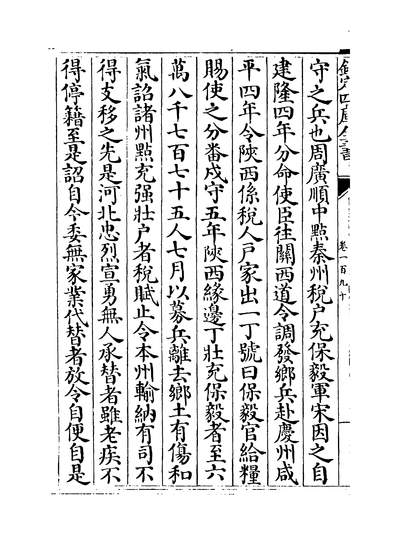 欽定四庫全書
卷一百九十
守之兵也周廣順中點秦州稅户充保毅軍宋因之自
建隆四年分命使臣往關西道令調發鄉兵赴慶州咸
平四年令陜西係稅人戸家出一丁號曰保毅官給糧
賜使之分番戍守五年陜西緣邊丁壯充保毅者至六
萬八千七百七十五人七月以募兵離去鄉土有傷和
氣詔諸州㸃充强壯户者稅賦止令本州輸納有司不
得支移之先是河北忠烈宣勇無人承替者雖老疾不
得停籍至是詔自今委無家業代替者放令自便自是